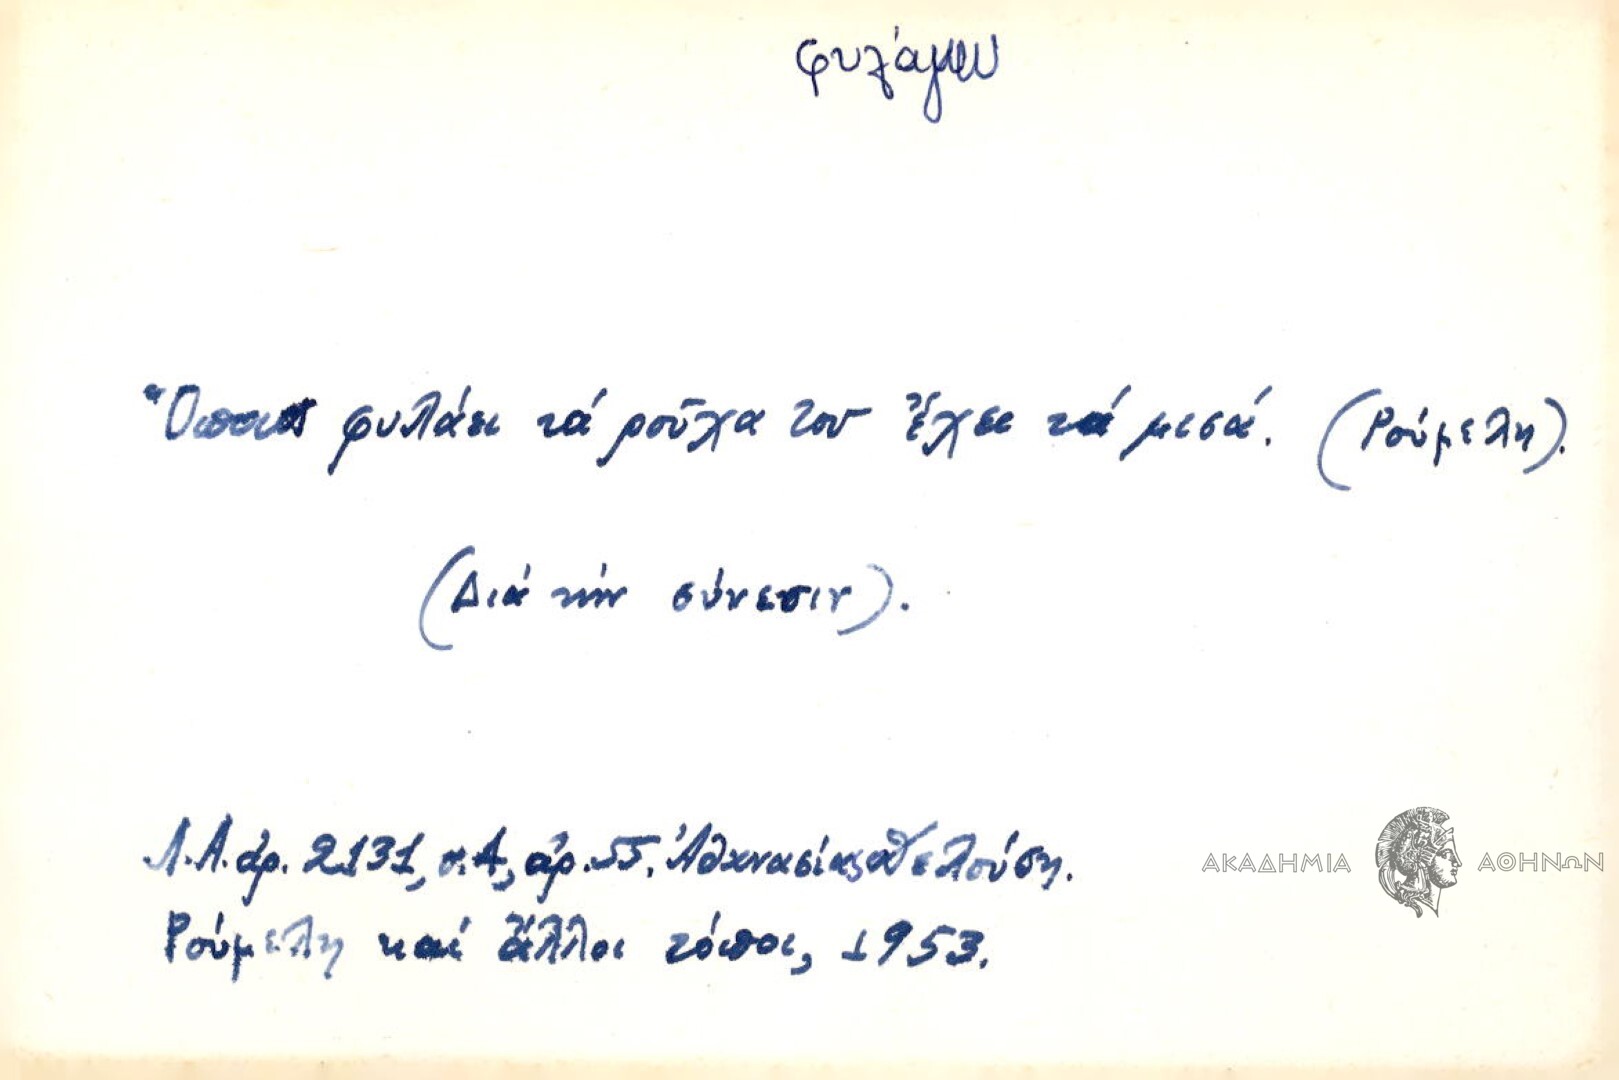 φυλάγω
Ὅποιος φυλάει τά ροῦχα του ἔχει τά μισά. (Ρούμελη).
(Διά τήν σύνεσιν).
Λ.Α. ἀρ. 2131, σ. 4, ἀρ. 55, Ἀθανασίας
Ρούμελη καί ἄλλοι τόποι, 1953.
ΑΚΑΔΗΜΙΑ ΑΘΗΝΩΝ